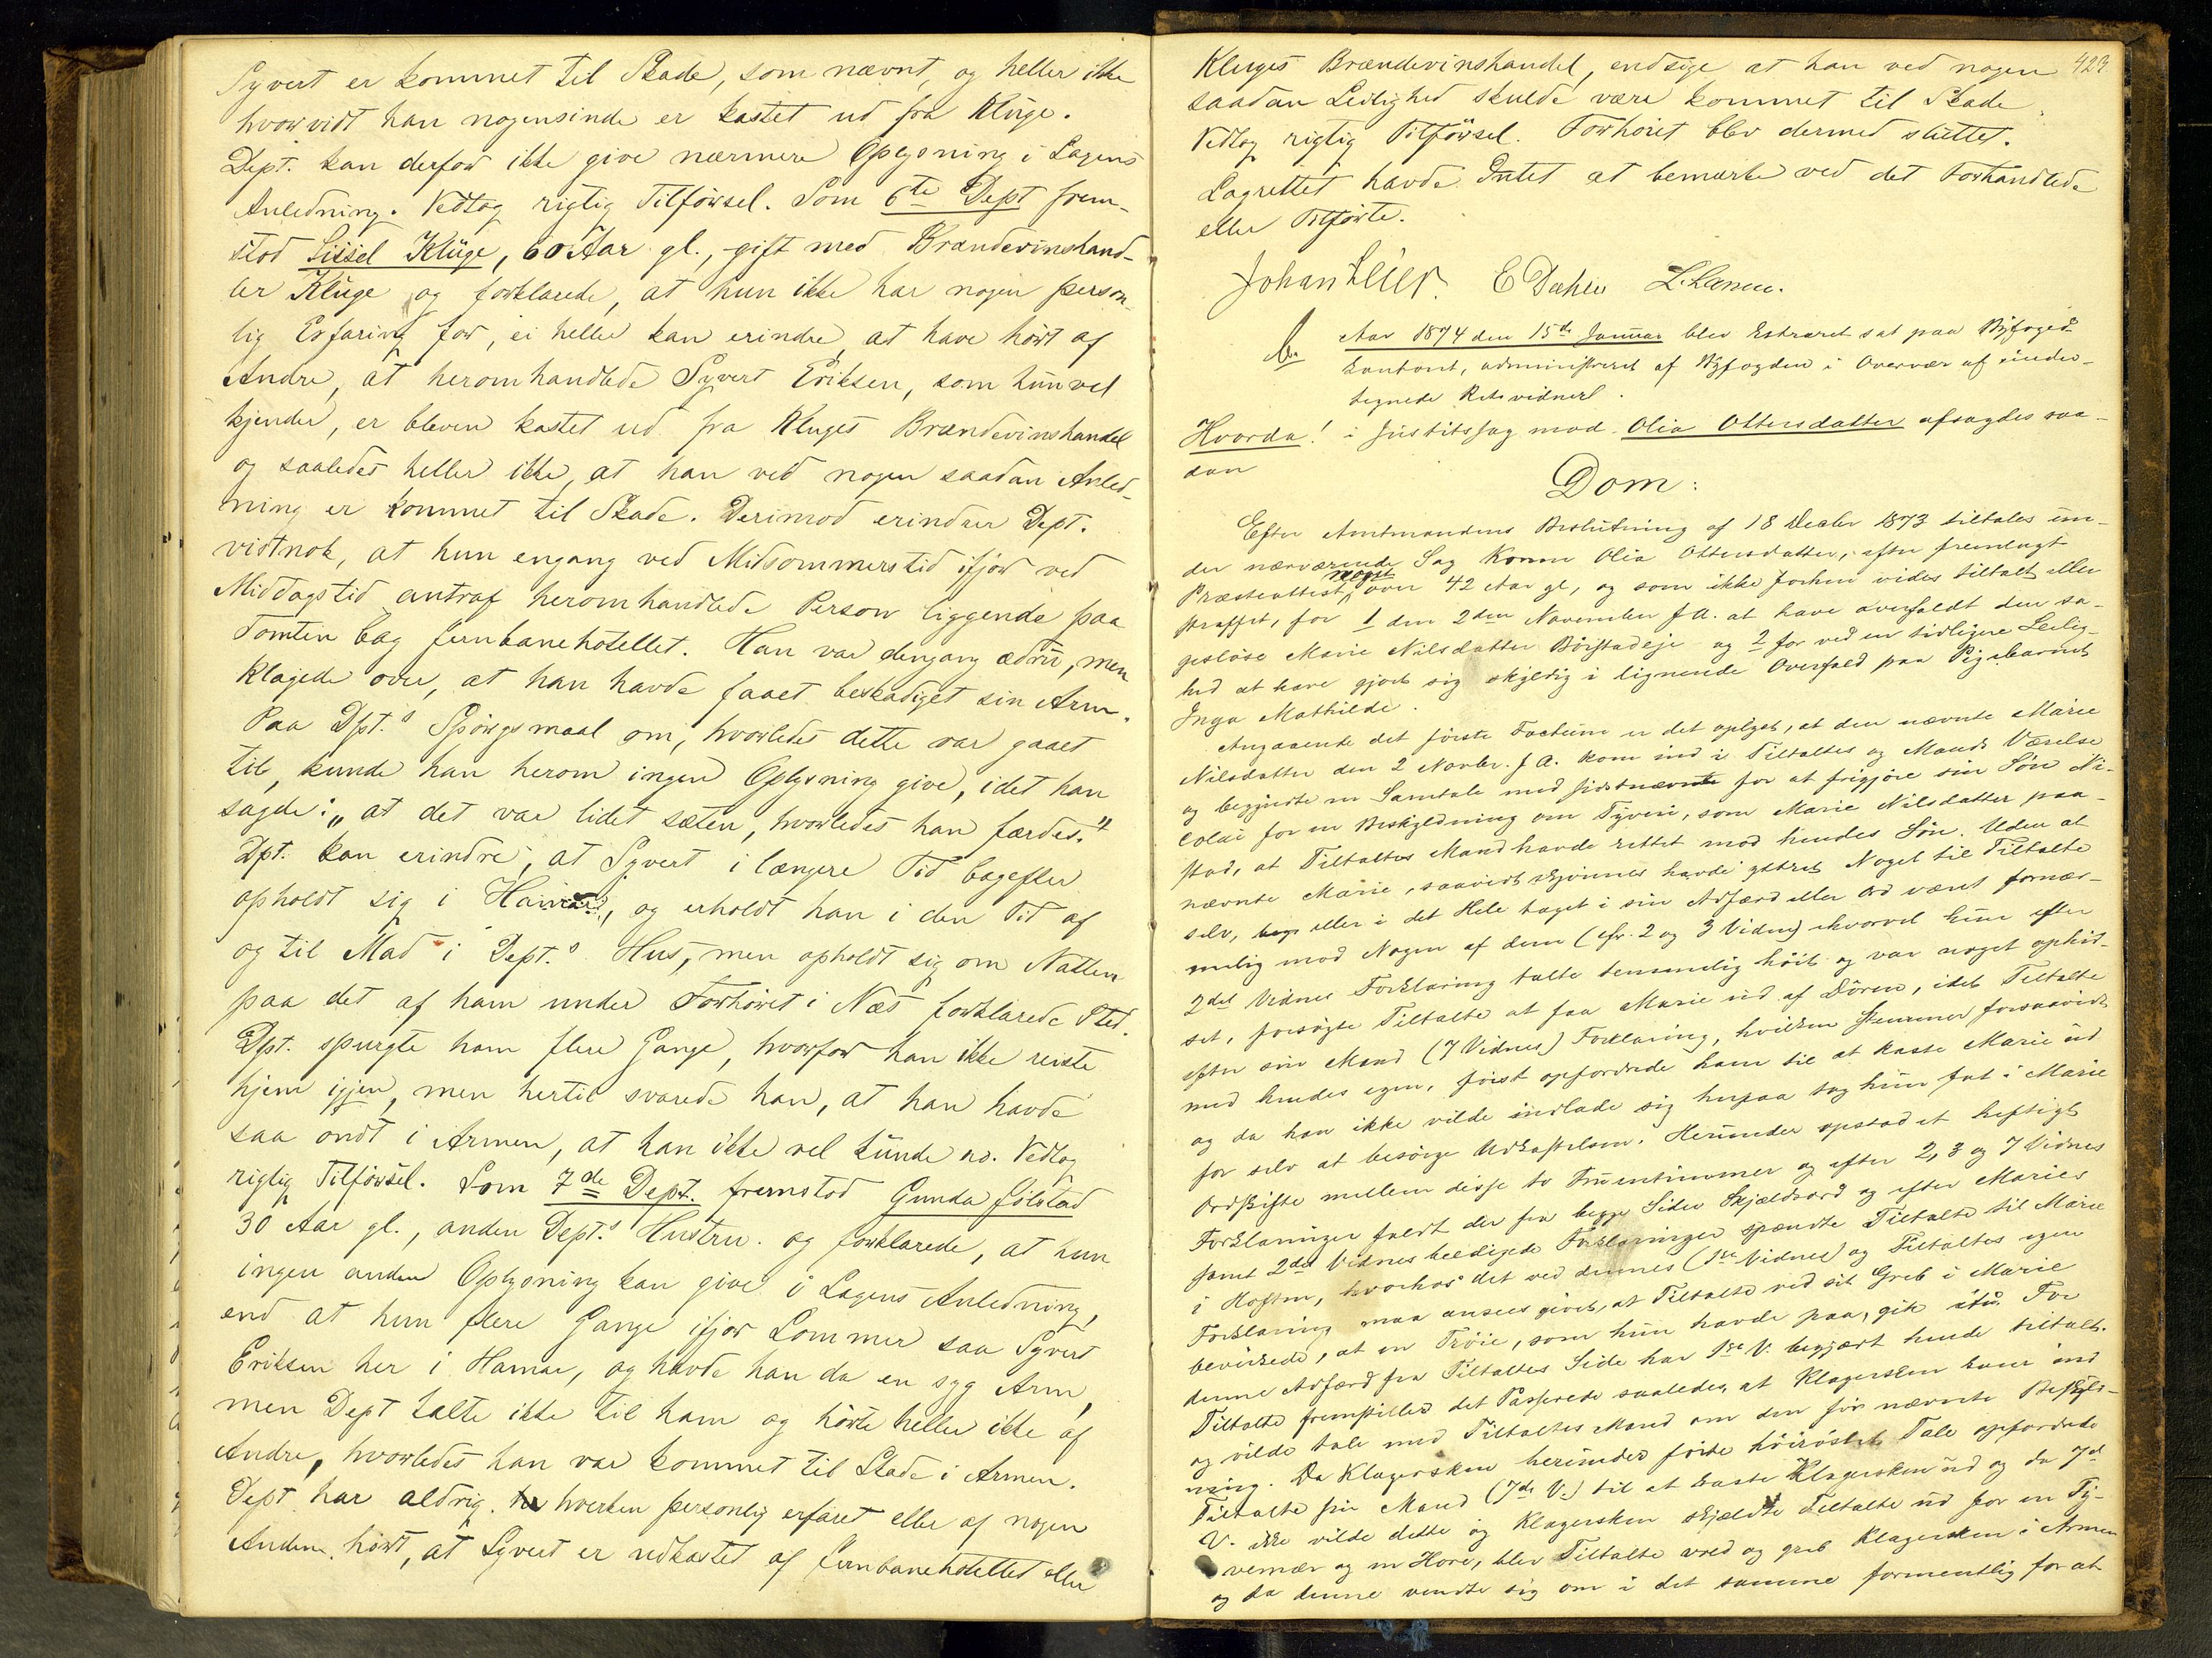 Syvert er kommet til Skade, som nævnt, og heller ikke
hvorvidt han nogensinde er kastet ud fra Kluge.
Dept. kan derfor ikke give nærmere Oplysning i Sagens
Anledning. Vedtog rigtig Tilførsel. Som 6te Dept frem-
stod Sissel Kluge, 60 Aar gl., gift med Brændevinshand-
ler Kluge og forklarede, at hun ikke har nogen person-
lig Erfaring for, ei heller kan erindre, at have hørt af
Andre, at heromhandlede Syvert Eriksen, som hun vel
kjender, er bleven kastet ud fra Kluges Brændevinshandel
og saaledes heller ikke, at han ved nogen saadan Anled-
ning er kommet til Skade. Derimod erindrer Dept.
vistnok, at hun engang ved Midsommerstid ifjor ved
Middagstid antraf heromhandlede Person liggende paa
Tomten bag Jernbanehotellet. Han var dengang ædru, men
klagede over, at han havde faaet beskadiget sin Arm.
Paa Dpt.s Spørgsmaal om, hvorledes dette var gaaet
til, kunde han herom ingen Oplysning give, idet han
sagde: „at det var lidet sæten, hvorledes han færdes."
Dpt. kan erindre, at Syvert i længere Tid bagefter
opholdt sig i Hamar, og erholdt han i den Tid af
og til Mad i Dept.s Hus, men opholdt sig om Natten
paa det af ham under Forhøret i Næs forklarede Sted.
Dpt. spurgte ham flere Gange, hvorfor han ikke reiste
hjem igjen, men hertil svarede han, at han havde
saa ondt i Armen, at han ikke vel kunde no. Vedtog
rigtig Tilførsel. Som 7de Dept. fremstod Gunda Jølstad
30 Aar gl., anden Dept.s Hustru og forklarede, at hun
ingen anden Oplysning kan give i Sagens Anledning,
end at hun flere Gange ifjor Sommer saa Syvert
Eriksen her i Hamar, og havde han da en syg Arm,
men Dept talte ikke til ham og hørte heller ikke af
Andre, hvorledes han var kommet til Skade i Armen.
Dept har aldrig hverken personlig erfaret eller af nogen
Anden hørt, at Syvert er udkastet af Jernbanehotellet eller
423
Kluges Brændevinshandel, endsige at han ved nogen
saadan Leilighed skulde være kommet til Skade
Vedtog rigtig Tilførsel. Forhøret blev dermed sluttet.
Lagrettet havde Intet at bemærke ved det Forhandlede
eller Tilførte.
Johan E Dahle L.
Aar 1874 den 15de Januar blev Extraret sat paa Byfogedens
Kontoir, administreret af Byfogden i Overvær af under-
tegnede Retsvidner.
Hvorda! i Justitssag mod Olia Ottersdatter afsagdes saa-
dan
Dom:
Efter Amtmandens Beslutning af 18 Decbr 1873 tiltales un-
der nærværende Sag Konen Olia Ottersdatter, efter fremlagt
Præsteattest noget over 42 Aar gl, og som ikke forhen vides tiltalt eller
straffet, for 1 den 2den November f. A. at have overfaldt den sa-
gesløse Marie Nilsdatter Børstadeje og 2 for ved en tidligere Leilig-
hed at have gjort sig skyldig i lignende Overfald paa Pigebarnet
Inga Mathilde.
Angaaende det første Factum er det oplyst, at den nævnte Marie
Nilsdatter den 2 Novbr. f. A. kom ind i Tiltaltes og Mands Værelse
og begyndte en Samtale med sidstnævnte for at frigjøre sin Søn Ni-
colai for en Beskyldning om Tyveri, som Marie Nilsdatter paa-
stod, at Tiltaltes Mand havde rettet mod hendes Søn. Uden at
nævnte Marie, saavidt skjønnes havde yttret Noget til Tiltalte
selv, eller i det Hele taget i sin Adfærd eller Ord været fornær-
melig mod Nogen af dem (cfr. 2 og 3 Vidne) ihvorvel hun efter
2det Vidnes Forklaring talte temmelig høit og var noget ophid-
set, forsøgte Tiltalte at faa Marie ud af Døren, idet Tiltalte
efter sin Mand (7 Vidnes) Forklaring, hvilken stemmer forsaavidt
med hendes egen, først opfordrede ham til at kaste Marie ud
og da han ikke vilde indlade sig herpaa tog hun fat i Marie
for selv at besørge Udkastelsen. Herunder opstod et heftigt
Ordskifte mellem disse to Fruentimmer og efter 2, 3 og 7 Vidnes
Forklaringer faldt der fra begge Sider Skjældsord og efter Maries
samt 2det Vidnes beedigede Forklaringer spændte Tiltalte til Marie
i Hoften, hvorhos det ved dennes (1ste Vidnes) og Tiltaltes egen
Forklaring maa ansees givet, at Tiltalte ved sit Greb i Marie
bevirkede, at en Trøie, som hun havde paa, gik itu. For
denne Adfærd fra Tiltaltes Side har 1ste V. begjært hende tiltalt.
Tiltalte fremstiller det Passerede saaledes, at Klagersken kom ind
og vilde tale med Tiltaltes Mand om den før nævnte Beskyld-
ning. Da Klagersken herunder førte høirøstet Tale opfordrede
Tiltalte sin Mand (7de V.) til at kaste Klagersken ud og da 7de
V. ikke vilde dette og Klagersken skjældte Tiltalte ud for en Ty-
vemær og en Hore, blev Tiltalte vred og greb Klagersken i Armen
og da denne vendte sig om i det samme formentlig for at